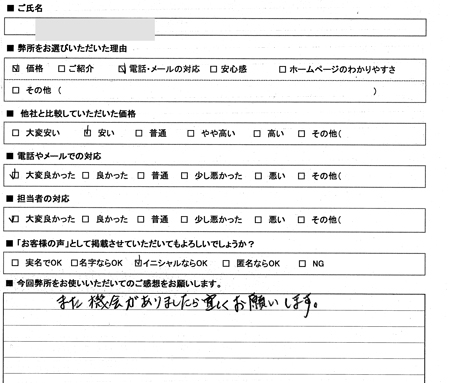 ■ ご氏名
■ 弊所をお選びいただいた理由
☑ 価格 □ ご紹介 ☑ 電話・メールの対応 □ 安心感 □ ホームページのわかりやすさ
□ その他 ( )
■ 他社と比較していただいた価格
□ 大変安い ☑ 安い □ 普通 □ やや高い □ 高い □ その他(
■ 電話やメールでの対応
☑ 大変良かった □ 良かった □ 普通 □ 少し悪かった □ 悪い □ その他(
■ 担当者の対応
☑ 大変良かった □ 良かった □ 普通 □ 少し悪かった □ 悪い □ その他(
■「お客様の声」として掲載させていただいてもよろしいでしょうか?
□ 実名でOK □ 名字ならOK ☑ イニシャルならOK □ 匿名ならOK □ NG
■ 今回弊所をお使いいただいてのご感想をお願いします。
また機会がありましたら宜しくお願いします。